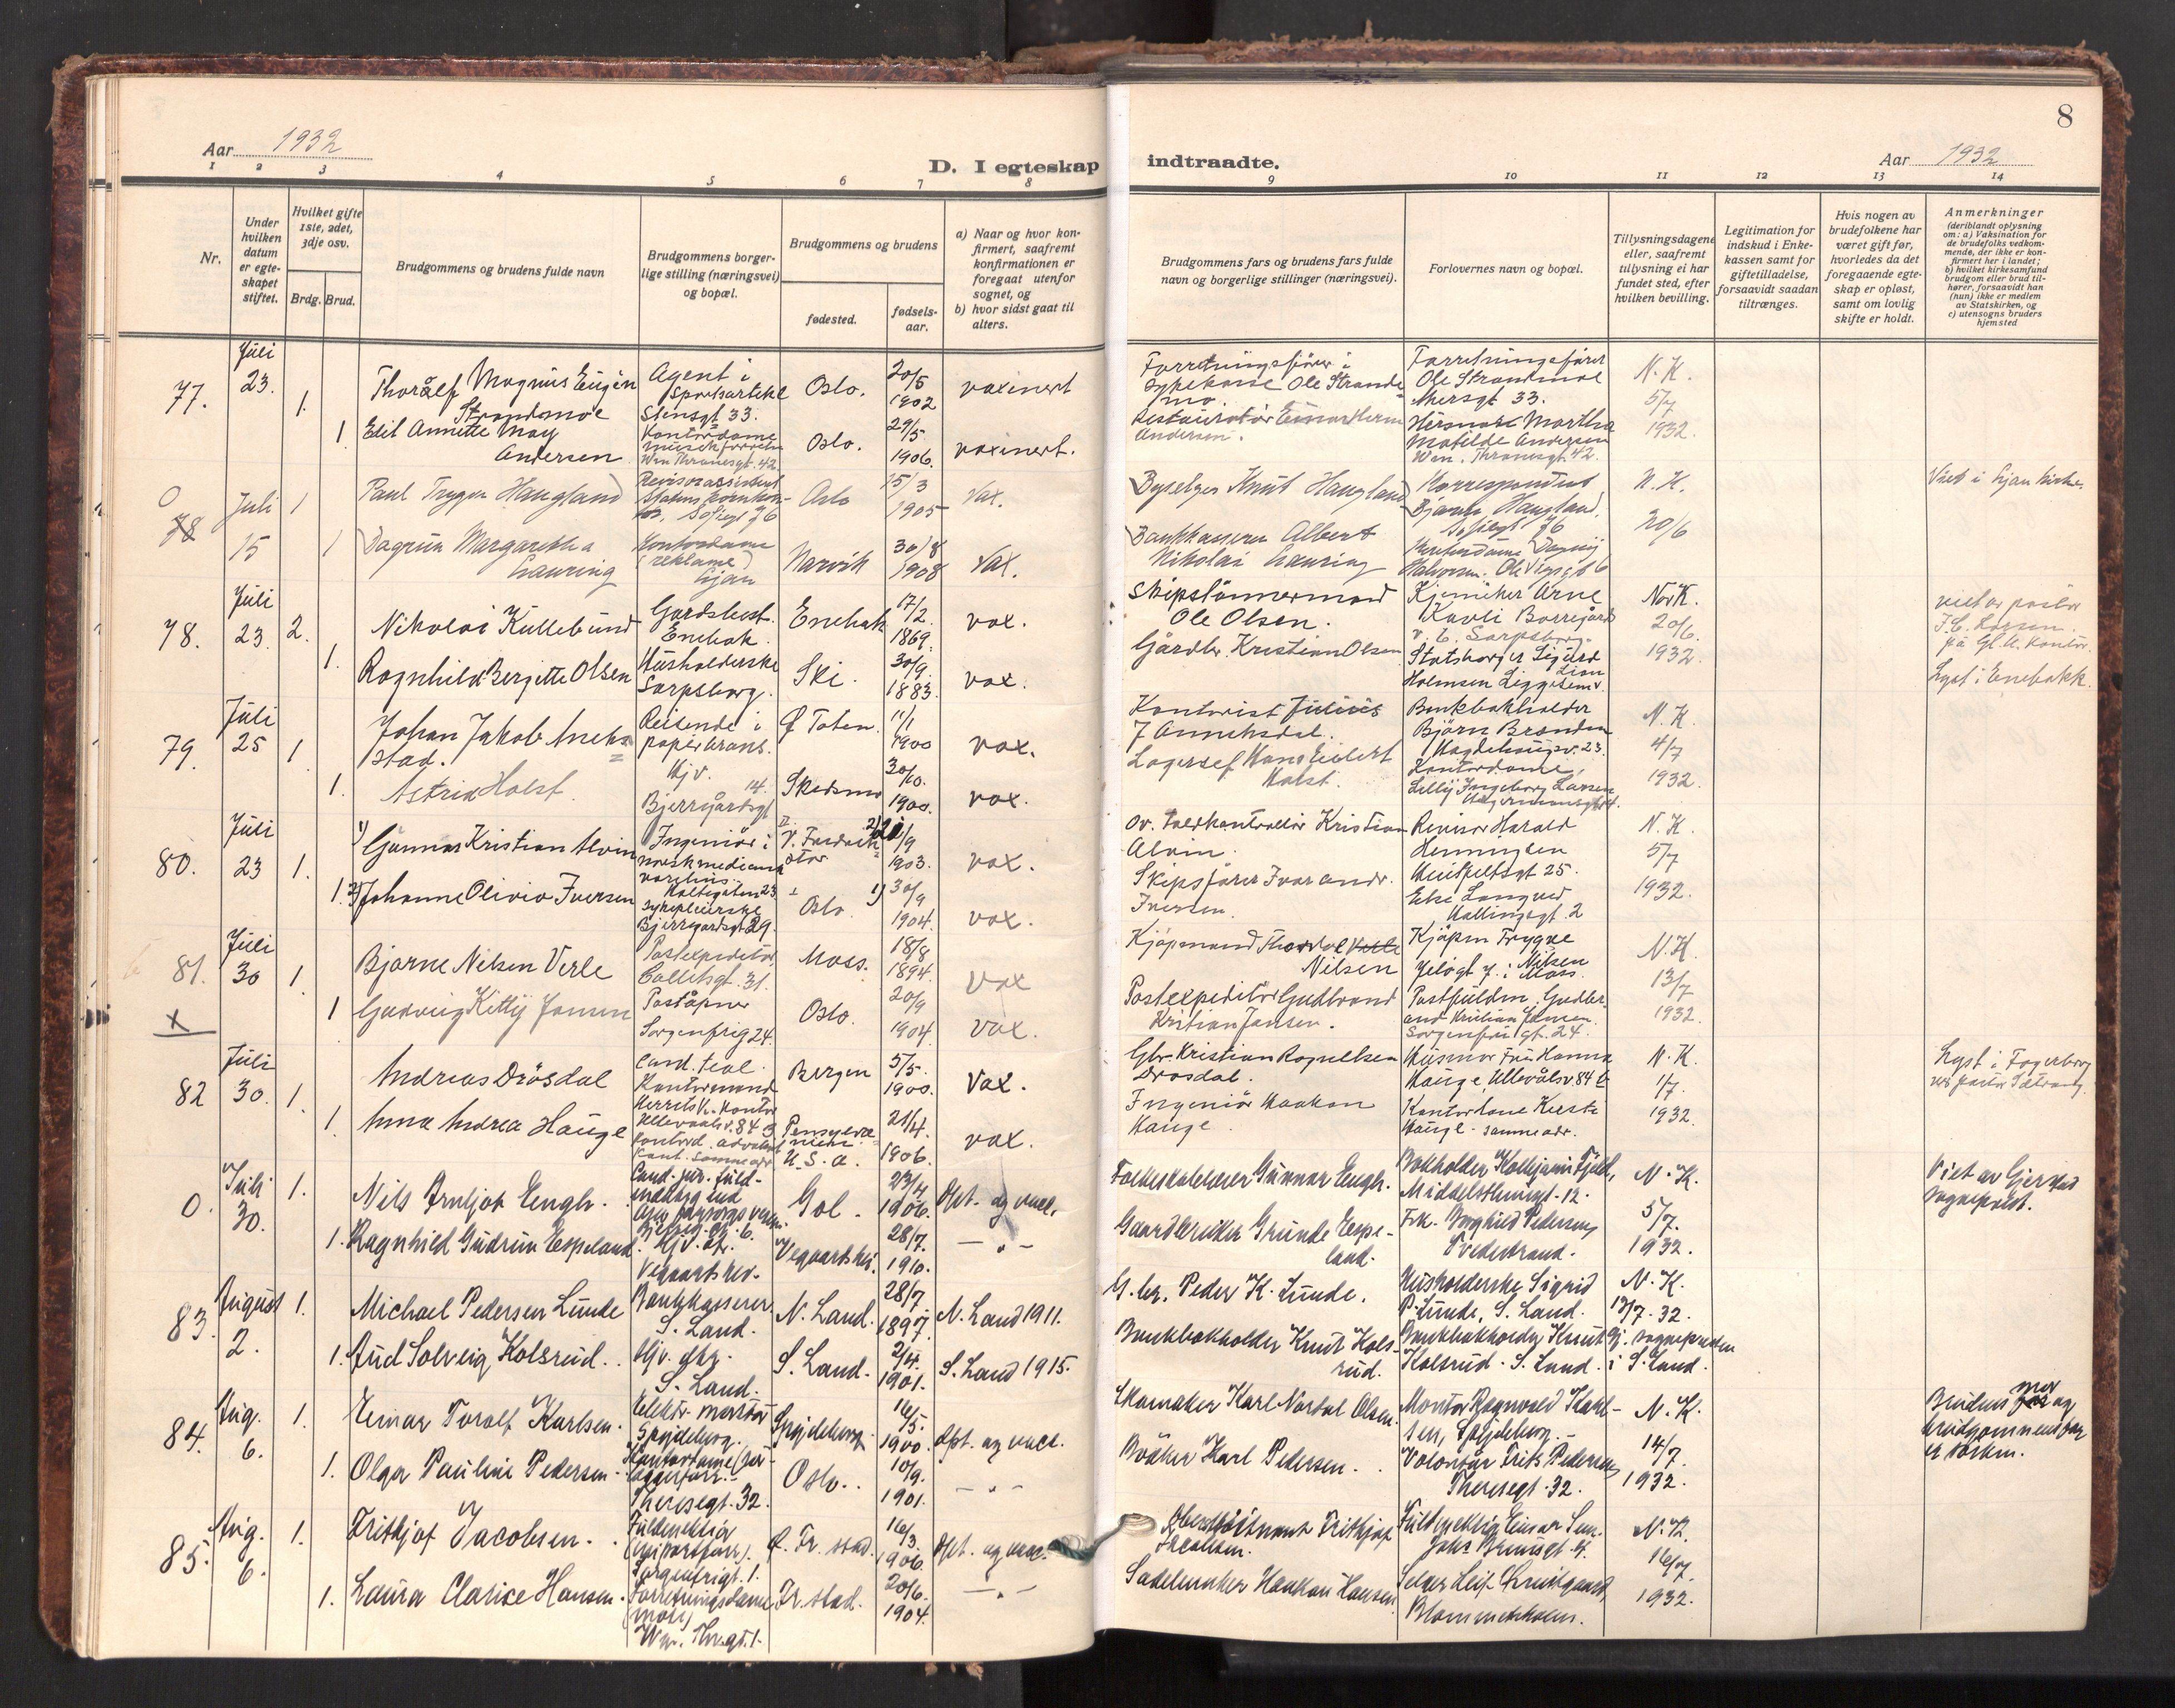 8
Aar 1932
D. I egteskap indtraadte.
Aar 1932
1 2 3 4 5 6 7 8 9 10 11 12 13 14
Nr.
Under hvilken datum er egte-skapet stiftet.
Hvilket gifte 1ste, 2det, 3dje osv.
Brdg. Brud.
Brudgommens og brudens fulde navn
Brudgommens borger-lige stilling (næringsvei) og bopæl.
Brudgommens og brudens
fødested.
fødsels-aar.
a) Naar og hvor kon-firmert, saafremt konfirmationen er foregaat utenfor sognet, og
b) hvor sidst gaat til alters.
Brudgommens fars og brudens fars fulde navn og borgerlige stillinger (næringsvei).
Forlovernes navn og bopæl.
Tillysningsdagene eller, saafremt tillysning ei har fundet sted, efter hvilken bevilling.
Legitimation for indskud i Enke-kassen samt for giftetilladelse, forsaavidt saadan tiltrænges.
Hvis nogen av brudefolkene har været gift før, hvorledes da det foregaaende egte-skap er opløst, samt om lovlig skifte er holdt.
Anmerkninger
(deriblandt oplysning om: a) Vaksination for de brudefolks vedkom-mende, der ikke er kon-firmert her i landet;
b) hvilket kirkesamfund brudgom eller brud til-hører, forsaavidt han (hun) ikke er medlem av Statskirken, og
c) utensogns bruders hjemsted
77. Juli 23. 1. Thoralf Magnus Eugen Strandmoe
Agent i Sportsartikl Stensgt 33.
Oslo. 20/5 1902 vaxinert
Forretningsfører i sykekasse Ole Strandmo.
Forretningsfører Ole Strandmoe Akersgt 33.
N. K. 5/7 1932.
1 Edit Annette May Andersen
Kontordame Wm Thranesgt. 42
Oslo. 29/5 1906. vaxinert.
Restauratør Einar Herm Andersen.
Husmor Martha Matilde Andersen Wm. Thranesgt. 42.
0 78 Juli 15 1 Paul Trygve Haugland
Revisorassistent Sofiesgt 76
Oslo 15/3 1905 Vax.
Knut Haugland
Korrespondent Bjarne Haugland. Sofiesgt 76
N. K. 20/6
Viet i Ljan kirke
1 Dagrun Margaretha Lauring
Kontordame (reklame) Ljan
Narvik 30/8 1908 Vax.
Bankkasserer Albert Nikolai Lauring
Kontordame Dagny Halvorsen. Ole Vigsgt 6
78. Juli 23. 2. Nikolai Kullebund
Gardsbest. Enebak.
Enebak 17/2. 1869. vax.
Skipstømmermand Ole Olsen.
Kjemiker Arne Kavli Borregård v. b. Sarpsborg.
Nor K. 20/6. 1932.
viet av pastor
på Gl. A. Kontor.
Lyst i Enebakk.
1. Ragnhild Bergitte Olsen
Husholderske Sarpsborg.
Ski. 30/9. 1883. vax.
Gårdbr. Kristian Olsen
79. Juli 25 1. Johan Jakob Anehstad.
Reisende i papirbrans.
Ø Toten. 11/1 1900 vax.
Kontorist Julius J Annehsdal.
Bankbokholder Bjørn Branden
N. K. 4/7 1932.
1. Astrid Holst.
Hjv. Bjerregårdsgt 14.
Skedsmo 30/10. 1900. vax.
Lagersjef Hans Eilert Holst.
Kontordame Lilly Ingeborg Larsen
80. Juli 23 1. 1) Gunnar Kristian Alvin
Ingeniør i norsk medicinsk varehus. Holtegaten 23.
V. Fredrikstar 2) 21/9 1903. vax.
Ov. toldkontrollør Kristian Alvin.
Revisor Harald Henningsen Huitfeltsgt 25.
N. K. 5/7 1932.
1. 2) Johanne Olivia Iversen
sykepleierske Bjerregaardsgt 29.
Oslo. 1) 30/9 1904. vax.
Skipsfører Ivar Andr. Iversen.
Else Langved Wallingsgt. 2
81. Juli 30 1. Bjarne Nilsen Verle
Postexpeditør, Colletsgt. 31.
Moss. 18/8 1894. vax
Kjøpmand Thorolv Nilsen
Kjøpm Trygve Nilsen Jeløgt 7. i Moss.
N. K. 13/7 1932.
x 1 Gudveig Kitty Jansen
Poståpner Sorgenfrig 24.
Oslo. 20/9 1904. vax.
Postexpeditør Gudbrand Kristian Jansen.
Postfuldm. Gudbrand Kristian Jansen. Sorgenfri gt. 24.
82 Juli 30. 1. Andreas Drösdal
Cand. teol. Kontormand Ullevaalsv. 84 B
Bergen 5/5. 1900. Vax.
Gbr. Kristian Ragnelsen Drosdal.
Husmor Fru Hanna Hauge Ullevålsv 84 b
N. K. 1/7. 1932
Lyst i Fagerborg
1. Anna Andrea Hauge
Pensylvanien U. S. A. 21/4. 1906. vax.
Ingeniør Haakon Hauge.
Kontordame Kirsti Hauge. samme adr.
0. Juli 30. 1. Nils Arnljot Eengh.
Cand. jur. fuld-mæktig
Gol. 23/4 1906. Dpt. og vacc.
Folkeskolelærer Gunnar Eengh.
Bokholder Middelthunsgt. 12.
N. K. 5/7. 1932.
Viet av Gjerstad sogneprest.
1. Ragnhild Gudrun Espeland.
Hjv. dt. Vegaarshei.
Vegaartshei. 28/7. 1910. — " —
Gaardbruker Grunde Espeland.
Frk. Borghild Pedersen, Tvedestrand.
83. August 2. 1. Michael Pedersen Lunde
Bankkasserer S. Land.
N. Land. 28/7 1897. N. Land 1911.
G. br. Peder K. Lunde.
Husholderske Sigrid P. Lunde, S. Land.
N. K. 13/7. 32. sognepresten i S. Land.
1. Aud Solveig Kolsrud.
Hjv. dtr. S. Land.
S. Land. 2/4. 1901. S. Land 1915.
Bankbokholder Knut Kolsrud.
Bankbokholder Knut Kolsrud. S. Land.
84. Aug. 6. 1. Einar Toralf Karlsen.
Elektr. montør Spydeberg.
Spydeberg 16/5. 1900. Dpt. og vacc.
Skomaker Karl Nartal Olsen.
Montør Ragnvald Karlsen, Spydeberg.
N. K. 14/7. 1932.
Brudens mor og brudgommens far er søsken.
1. Olga Pauline Pedersen
Kontordame Theresegt. 32.
Oslo. 10/9. 1901. — " —
Bødker Karl Pedersen.
Volontør Frits Pedersen Theresegt. 32.
85. Aug. 6. 1. Frithjof Jacobsen.
Fuldmektig (importforr). Sorgenfrigt. 1.
Ø. Fr. stad. 16/3. 1906. Dpt. og vacc.
Oberstløitnant Frithjof Jacobsen.
Fuldmektig Einar
N. K. 16/7. 1932.
1. Laura Clarice Hansen.
Forretningsdame (mote) Wm. Thr. gt. 1.
Fr. stad. 20/6. 1904. — " —
Sadelmaker Haakon Hansen
Selger Leif Blommenholm.